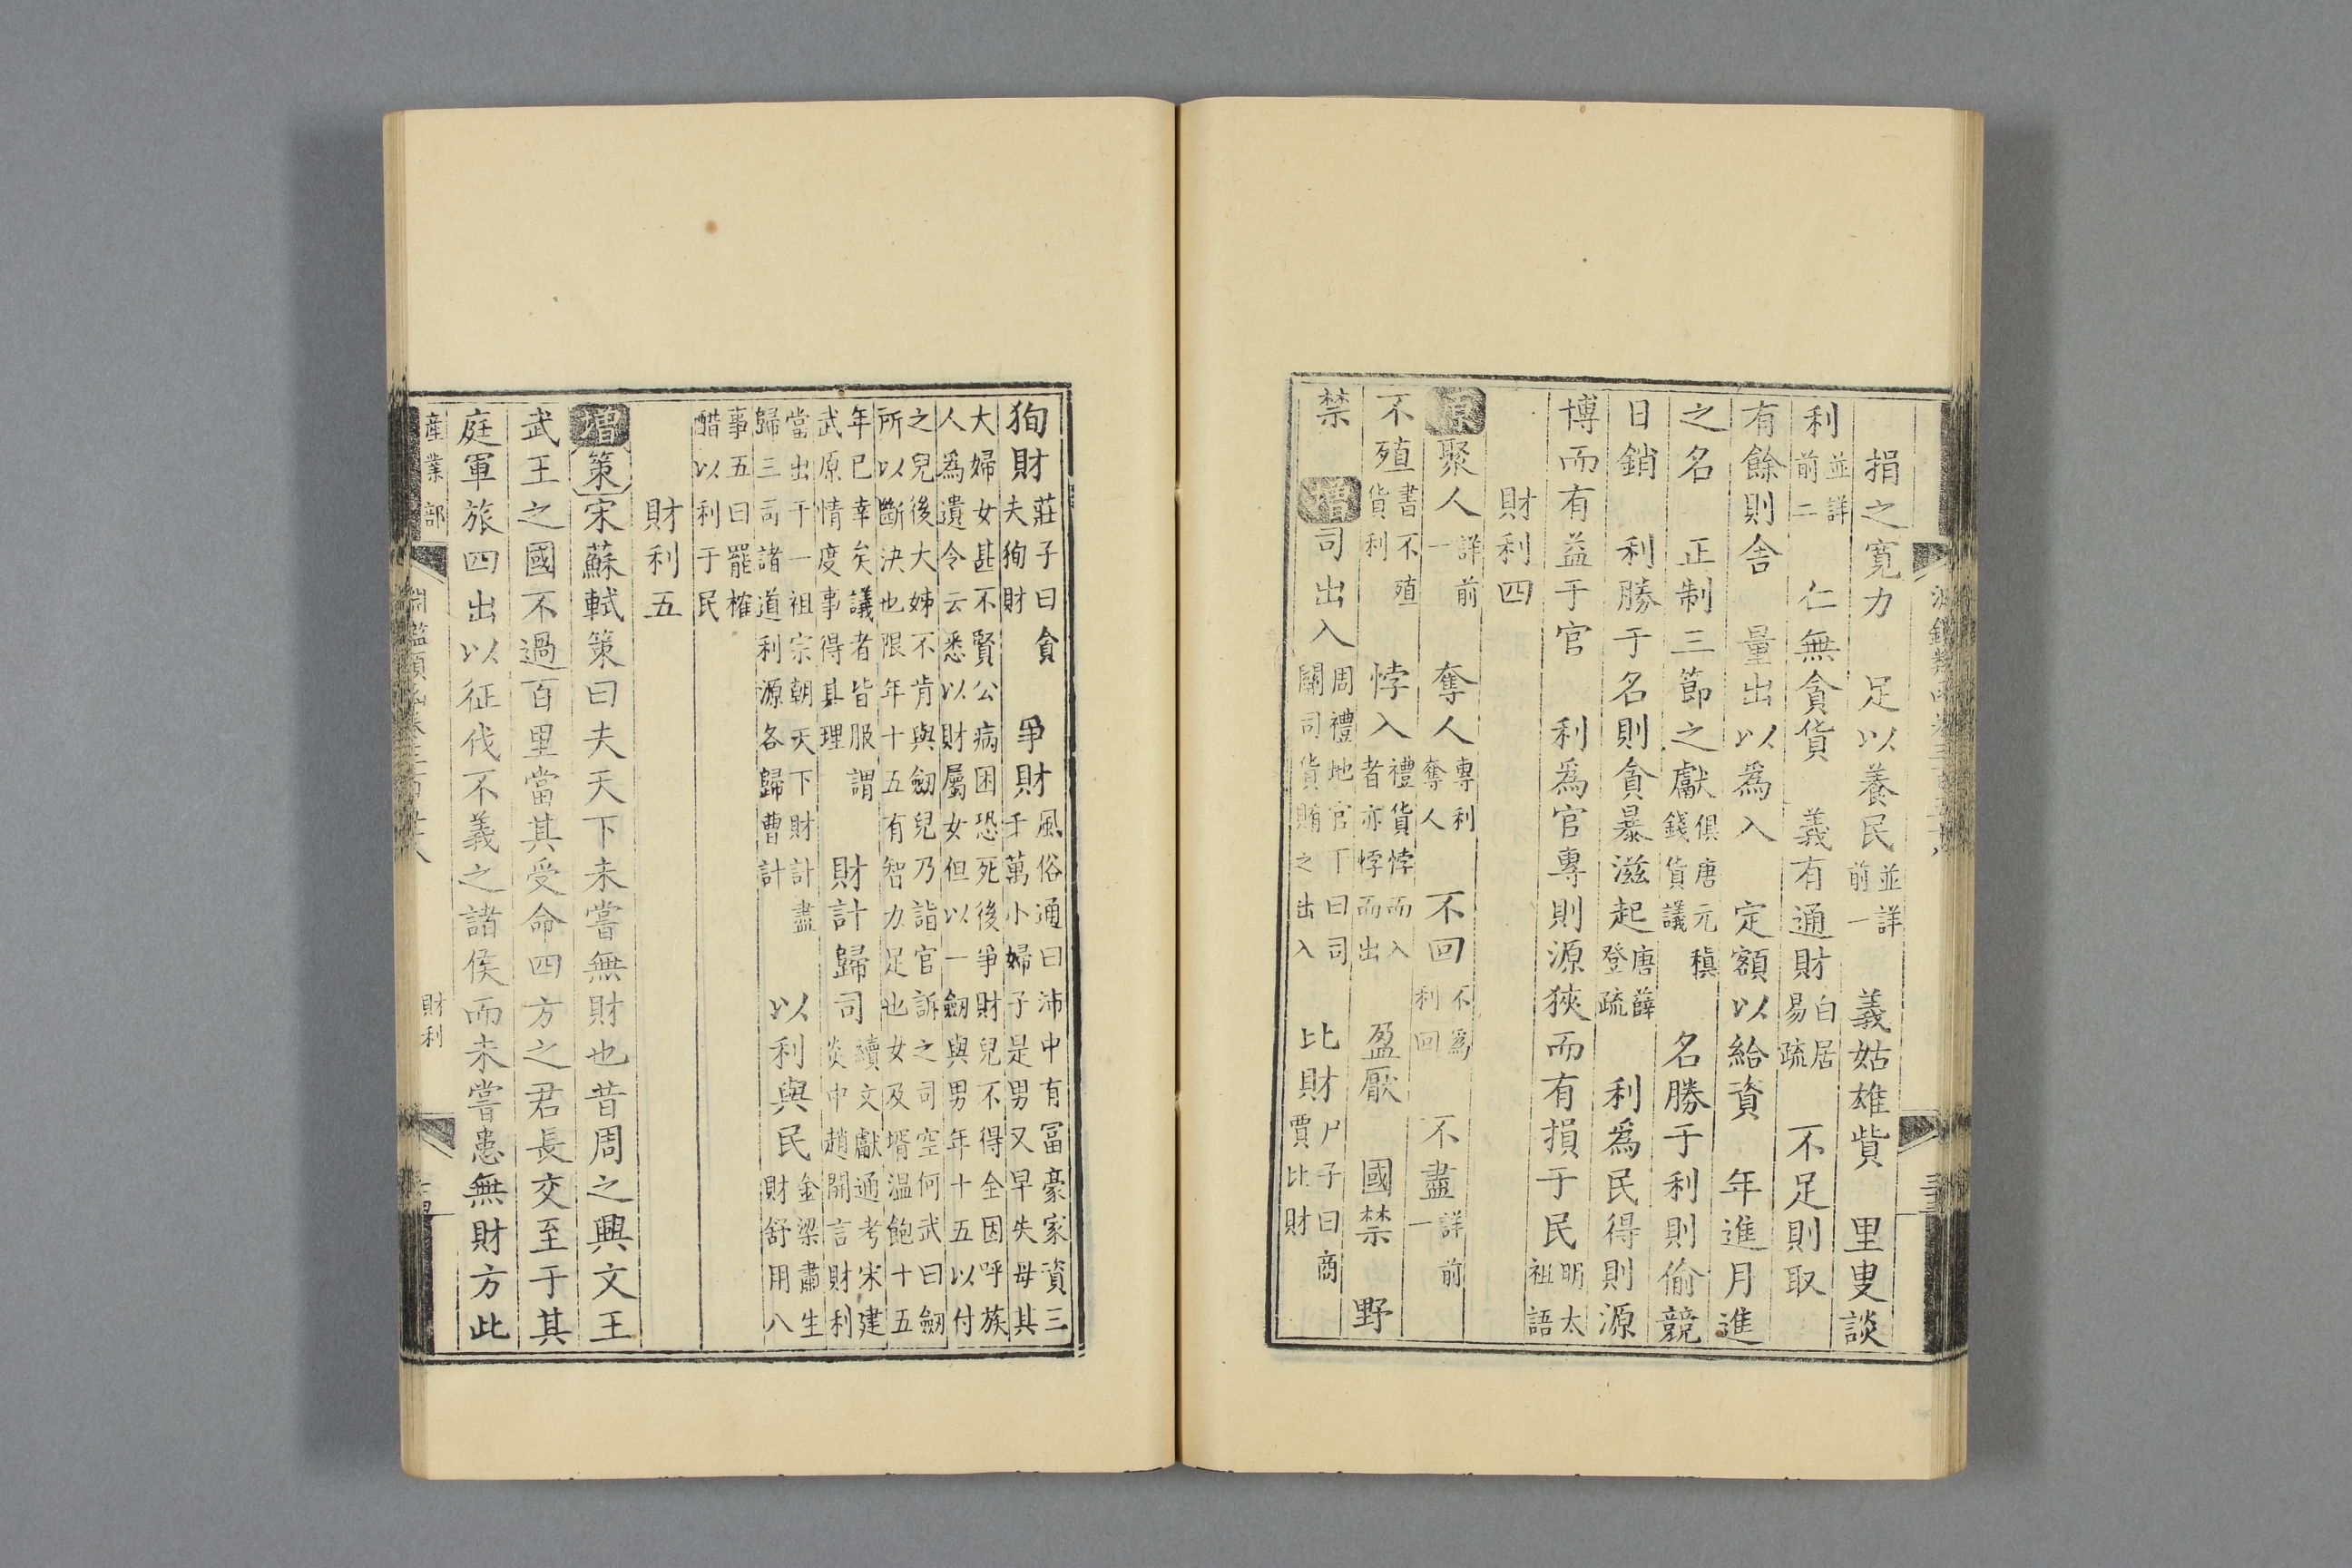 捐之寬力　足以養民並詳前一　義姑雄貲　里叟談
利並詳前二　仁無貪貨　義有通財白居易疏　不足則取
有餘則舍　量出以為入　定額以給資　年進月進
之名　正制三節之獻俱唐元稹錢貨議　名勝于利則偷競
日銷　利勝于名則貪暴滋起唐薛登疏　利爲民得則源
博而有益于官　利爲官專則源狹而有損于民明太祖語
財利四
原聚人詳前一　奪人專利奪人　不回不爲利回　不盡詳前一
不殖書不殖貨利　悖入禮貨悖而入者亦悖而出　盈厭　國禁　野
禁　增司出入周禮地官下曰司關司貨賄之出入　比財尸子曰商賈比財
狥財莊子曰貪夫狥財　爭財風俗通曰沛中有冨豪家資三千萬小婦子是男又早失母其
大婦女甚不賢公病困恐死後爭財兒不得全因呼族人爲遺令云悉以財屬女但以一劒與男年十五以付
之兒後大姊不肯與劒兒乃詣官訴之司空何武曰劒所以斷決也限年十五有智力足也女及壻溫飽十五
年已幸矣議者皆服謂武原情度事得其理　財計歸司續文獻通考宋建炎中趙開言財利
當出于一祖宗朝天下財計盡歸三司諸道利源各歸曹計　以利與民金梁肅生財舒用八
事五曰罷榷醋以利于民
財利五
增策宋蘇軾策曰夫天下未嘗無財也昔周之興文王
武王之國不過百里當其受命四方之君長交至于其
庭軍旅四出以征伐不義之諸侯而未嘗患無財方此
産業部
財利